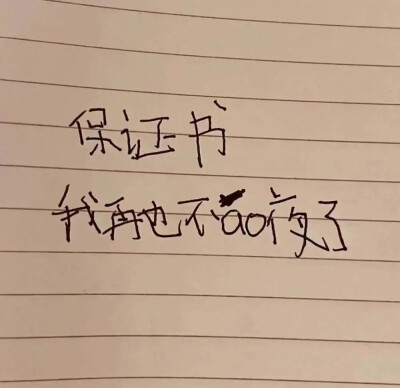 保证书
我再也不ao夜了